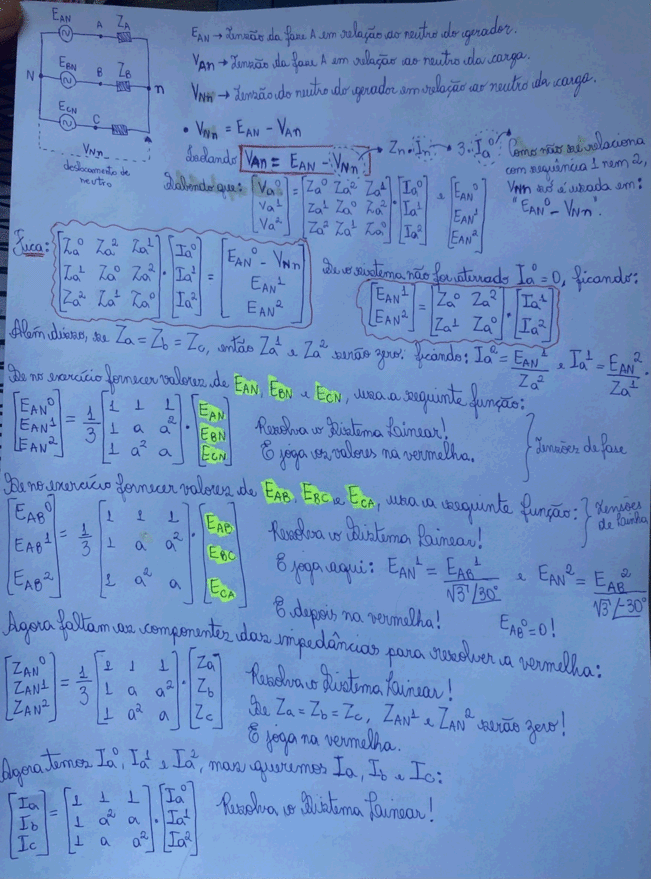 E_AN A Z_A
E_BN B Z_B
N n
E_CN C
V_Nn
deslocamento de
neutro
E_AN → Tensão da fase A em relação ao neutro do gerador.
V_An → Tensão da fase A em relação ao neutro da carga.
V_Nn → Tensão do neutro do gerador em relação ao neutro da carga.
• V_Nn = E_AN - V_An
Isolando V_An = E_AN - V_Nn → Zn · In → 3 · Ia⁰
Como não se relaciona
com sequência 1 nem 2,
V_Nn só é usada em:
"E_AN⁰ - V_Nn".
Sabendo que: [Va⁰; Va¹; Va²] = [Za⁰ Za² Za¹; Za¹ Za⁰ Za²; Za² Za¹ Za⁰] · [Ia⁰; Ia¹; Ia²] e [E_AN⁰; E_AN¹; E_AN²]
Fica: [Za⁰ Za² Za¹; Za¹ Za⁰ Za²; Za² Za¹ Za⁰] · [Ia⁰; Ia¹; Ia²] = [E_AN⁰ - V_Nn; E_AN¹; E_AN²]
Se o sistema não for aterrado Ia⁰ = 0, ficando:
[E_AN¹; E_AN²] = [Za⁰ Za²; Za¹ Za⁰] · [Ia¹; Ia²]
Além disso, se Za = Zb = Zc, então Za¹ e Za² serão zero. ficando: Ia² = E_AN¹/Za² e Ia¹ = E_AN²/Za¹.
Se no exercício fornecer valores de E_AN, E_BN e E_CN, usa a seguinte função:
[E_AN⁰; E_AN¹; E_AN²] = 1/3 [1 1 1; 1 a a²; 1 a² a] · [E_AN; E_BN; E_CN]
Resolva o Sistema Linear!
E joga os valores na vermelha.
} Tensões de fase
Se no exercício fornecer valores de E_AB, E_BC e E_CA, usa a seguinte função:
} Tensões
de Linha
[E_AB⁰; E_AB¹; E_AB²] = 1/3 [1 1 1; 1 a a²; 1 a² a] · [E_AB; E_BC; E_CA]
Resolva o Sistema Linear!
E joga aqui: E_AN¹ = E_AB¹/√3∠30° e E_AN² = E_AB²/√3∠-30°
E depois na vermelha! E_AB⁰ = 0!
Agora faltam as componentes das impedâncias para resolver a vermelha:
[Z_AN⁰; Z_AN¹; Z_AN²] = 1/3 [1 1 1; 1 a a²; 1 a² a] · [Za; Zb; Zc]
Resolva o Sistema Linear!
Se Za = Zb = Zc, Z_AN¹ e Z_AN² serão zero!
E joga na vermelha.
Agora temos Ia⁰, Ia¹ e Ia², mas queremos Ia, Ib e Ic:
[Ia; Ib; Ic] = [1 1 1; 1 a² a; 1 a a²] · [Ia⁰; Ia¹; Ia²]
Resolva o Sistema Linear!